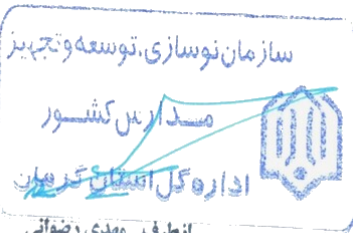 سازمان نوسازی، توسعه و تجهیز
مدارس کشور
اداره کل استان کرمان
از طرف مهدی رضوانی